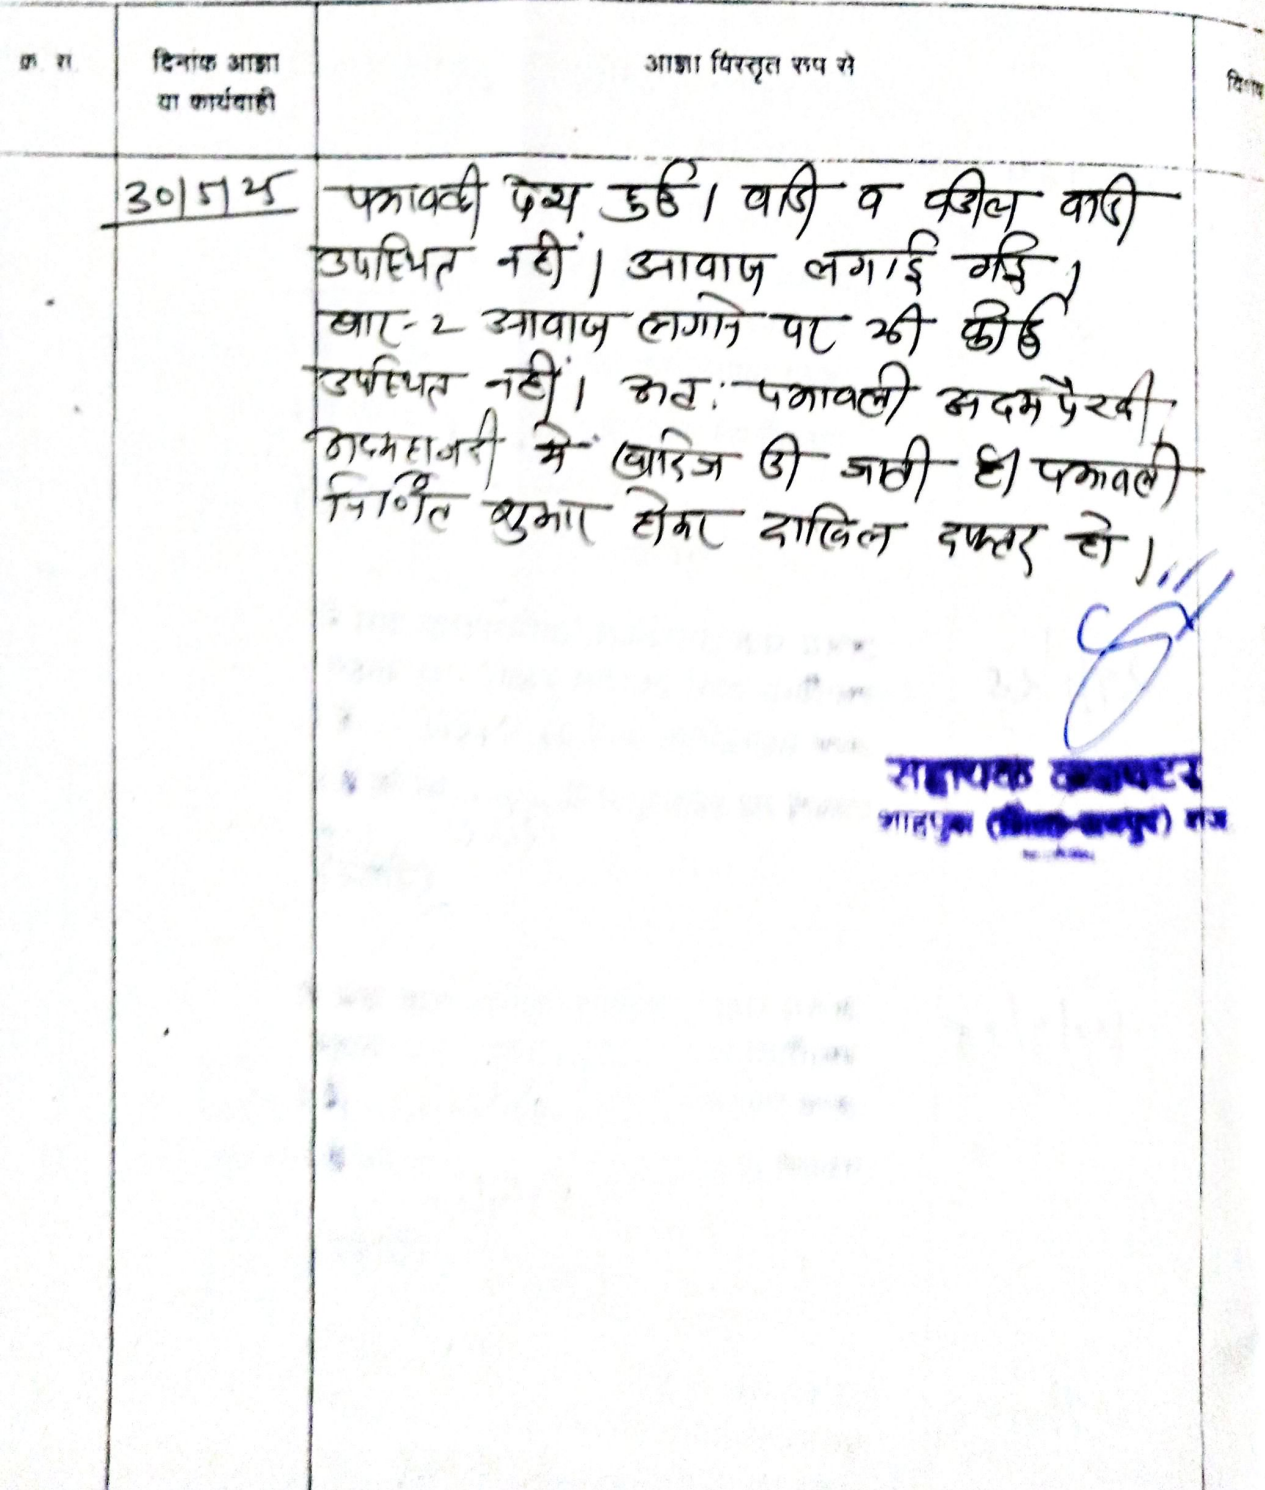 क्र. सं.
दिनांक आज्ञा
या कार्यवाही
आज्ञा विस्तृत रूप से
30/5/25
पत्रावली पेश हुई। वादी व वकील वादी
उपस्थित नहीं। आवाज लगाई गई।
बार-2 आवाज लगाने पर भी कोई
उपस्थित नहीं। अतः पत्रावली अदम पैरवी,
अदमहाजरी में खारिज की जाती है। पत्रावली
निर्णित शुमार होकर दाखिल दफ्तर हो।
सहायक कलक्टर
शाहपुरा (जिला-जयपुर) राज